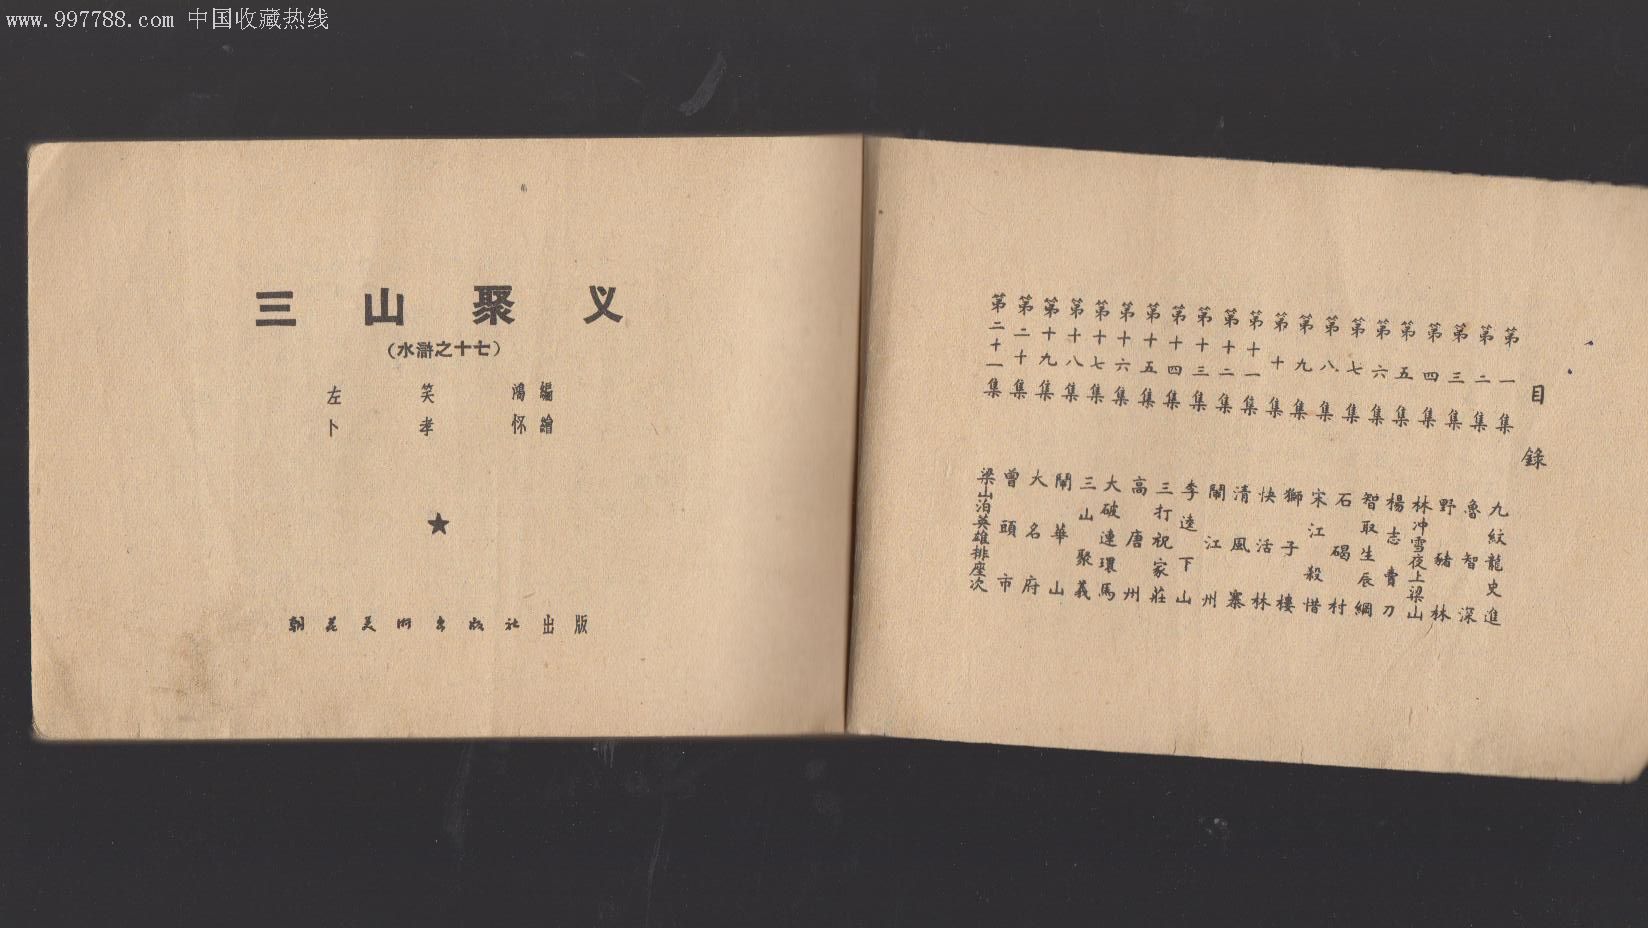 www.997788.com 中国收藏热线
三山聚义
(水滸之十七)
左笑鴻編
卜孝怀繪
★
朝花美術出版社出版
目錄
第一集 九紋龍史進
第二集 魯智深
第三集 野豬林
第四集 林冲雪夜上梁山
第五集 楊志賣刀
第六集 智取生辰綱
第七集 石碣村
第八集 宋江殺惜
第九集 獅子樓
第十集 快活林
第十一集 清風寨
第十二集 鬧江州
第十三集 李逵下山
第十四集 三打祝家莊
第十五集 高唐州
第十六集 大破連環馬
第十七集 三山聚義
第十八集 鬧華山
第十九集 大名府
第二十集 曾頭市
第二十一集 梁山泊英雄排座次